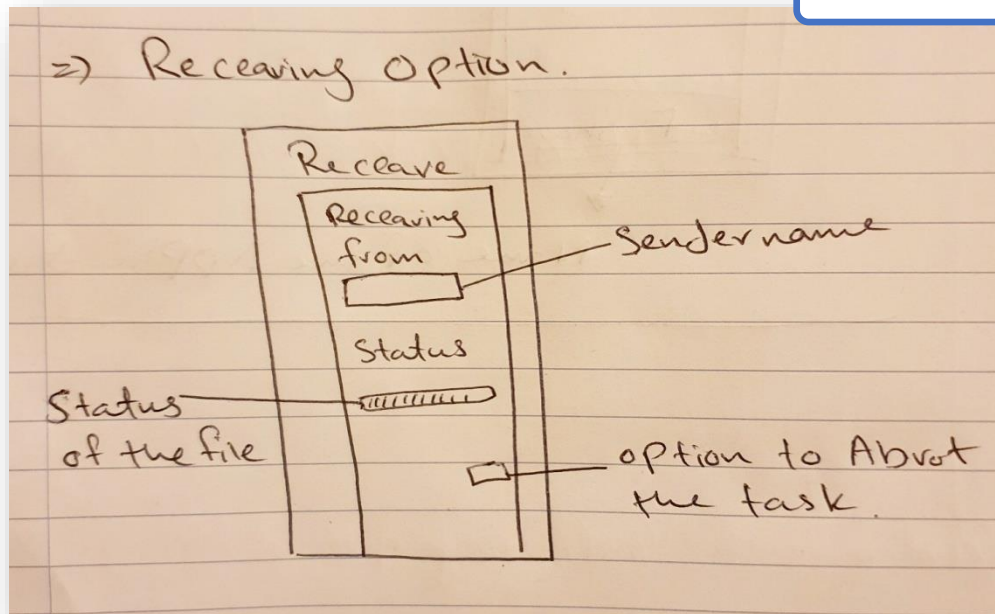 =) Receaving option.
Receave
Receaving
from
Sender name
Status
Status
of the file
option to Abrot
the task.